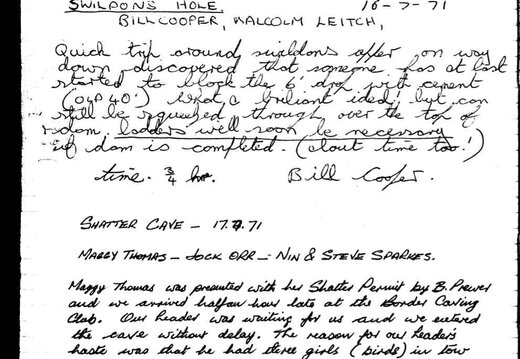 SWILDONS HOLE. 16-7-71
BILL COOPER, MALCOLM LEITCH,
Quick trip around swildons after on way
down discovered that someone has at last
started to block the 6' drop with cement
(old 40') What a briliant idea, but can
still be squeezed through over the top of
dam. ladders well soon be necessary
if dam is completed. (about time too!)
time. 3/4 hr. Bill Cooper.
SHATTER CAVE - 17.7.71
MAGGY THOMAS - JOCK ORR - NIN & STEVE SPARKES.
Maggy Thomas was presented with her Shatter Permit by B. Prewer
and we arrived half an hour late at the Border Caving
Club. Our Leader was waiting for us and we entered
the cave without delay. The reason for our Leaders
haste was that he had three girls (birds) in tow